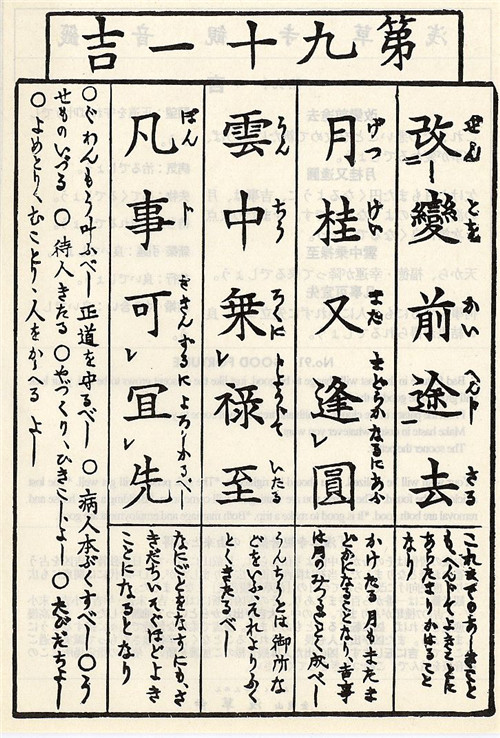 第九十一吉
改變前途去
これまでのあしきこと
もへんじてよきことに
あらたまりかはること
なり
月桂又逢圓
げつ けい また まどかなるにあふ
かけたる月もまたま
どかになることなり吉事
は月のみつるごとく成べし
雲中乗禄至
うん ちう ろくに じようじて いたる
うんちうとは御所な
どをいふそれよりふく
とくきたるべし
凡事可宜先
なにごとをなすにも、さ
きだちいそぐほどよき
ことになるとなり
〇ぐわんもう叶ふべし 正道を守るべし 〇病人本ぶくすべし 〇う
せものいづる 〇待人きたる 〇やづくり、ひきこしよし 〇たびだちよし
〇よめとり、むことり、人をかゝへる よし